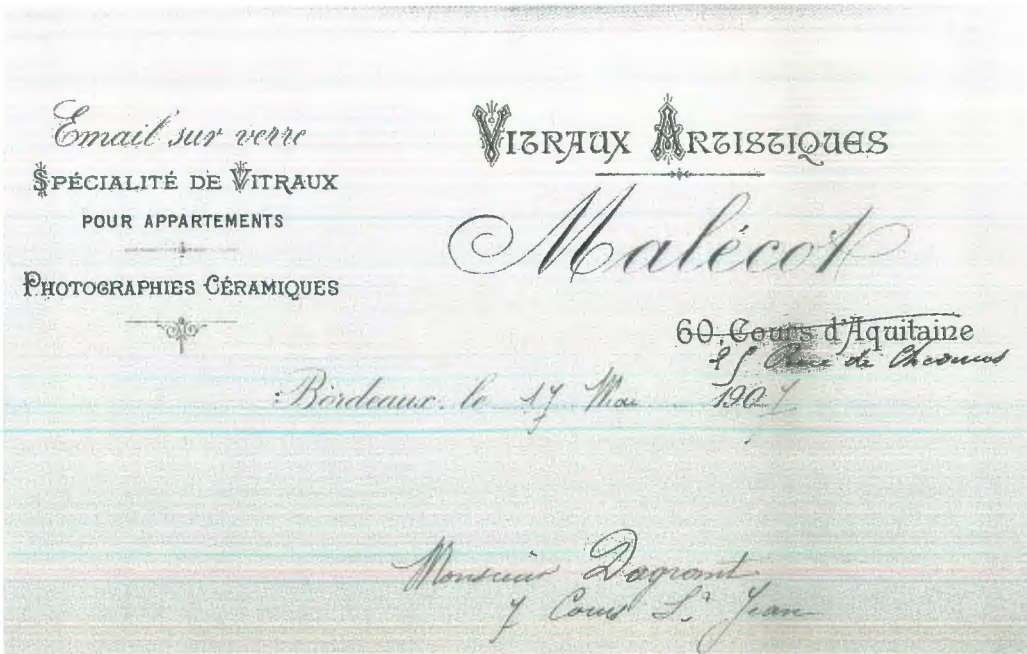 Email sur verre
SPÉCIALITÉ DE VITRAUX
POUR APPARTEMENTS
PHOTOGRAPHIES CÉRAMIQUES
VITRAUX ARTISTIQUES
Malécot
60, Cours d'Aquitaine
de
Bordeaux, le 17 Mai 1907
Monsieur Dagrant
7 Cours St Jean